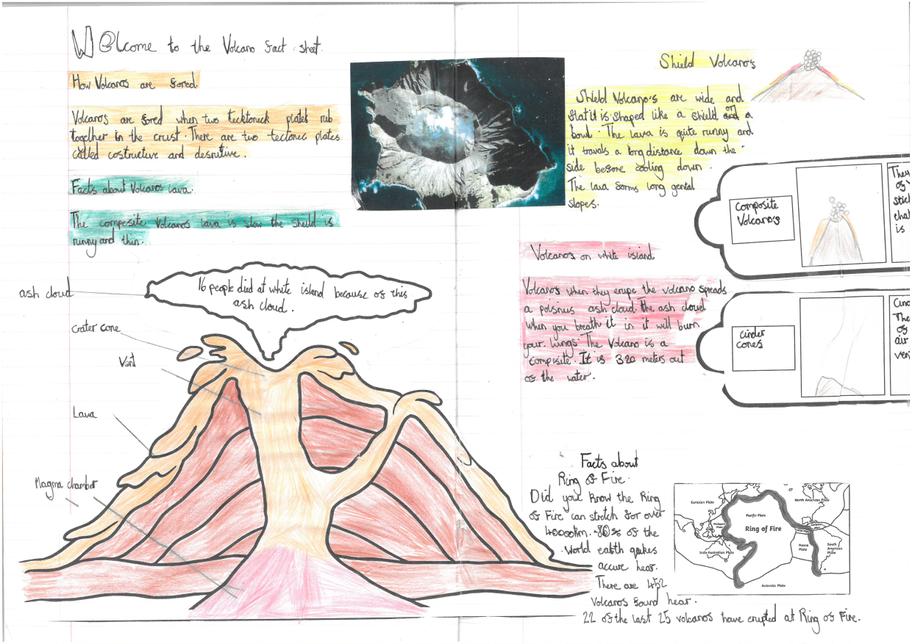 Welcome to the Volcano fact sheet.
How Volcanos are formed
Volcanos are fored when two tecktonick platets rub
togther in the crust. There are two tectonic plates
called costructive and desrutive.
Facts about Volcanos lava.
The composite Volcanos lava is slow the sheild is
runny and thin.
ash cloud
16 people died at white island because of this
ash cloud.
crater cone
Vent
Lava
Magma chamber
Shield Volcano's
Shield Volcano's are wide and
flat it is shaped like a shield or a
bowl. The lava is quite runny and
it travals a long distance down the
side before cooling down.
The lava forms long gental
slopes.
Volcanos on white island
Volcanos when they erupe the volcano spreads
a poisnus ash cloud. the ash cloud
when you breath it in it will burn
your lungs. The Volcano is a
composite. It is 320 meters out
of the water.
Composite
Volcano's
They
of
stic
that
is
cinder
cones
Cind
The
of
air
ver
Facts about
Ring of Fire.
Did you know the Ring
of Fire can stretch for over
40000km. 80% of the
World earth quakes
accure hear.
There are 452
Volcanos found hear.
22 of the last 25 volcanos have erupted at Ring of Fire.
Eurasian Plate
North American Plate
Pacific Plate
Ring of Fire
Indo-Australian Plate
Nazca Plate
South American Plate
Antarctic Plate